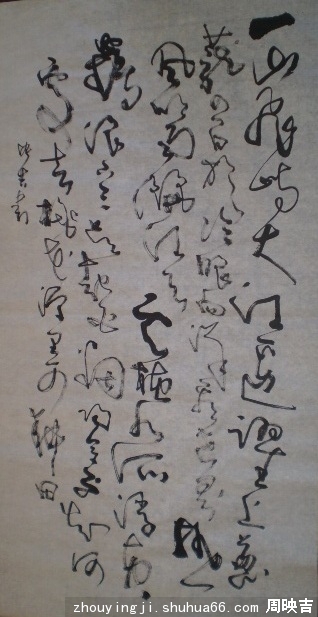 一山飛峙大江邊躍上葱
蘢四百旋冷眼向洋看世界熱
風吹雨灑江天雲橫九派浮黃
鶴浪下三吳起白烟陶令不知何
處去桃花源里可耕田
zhouyingji.shuhua66.com 周映吉